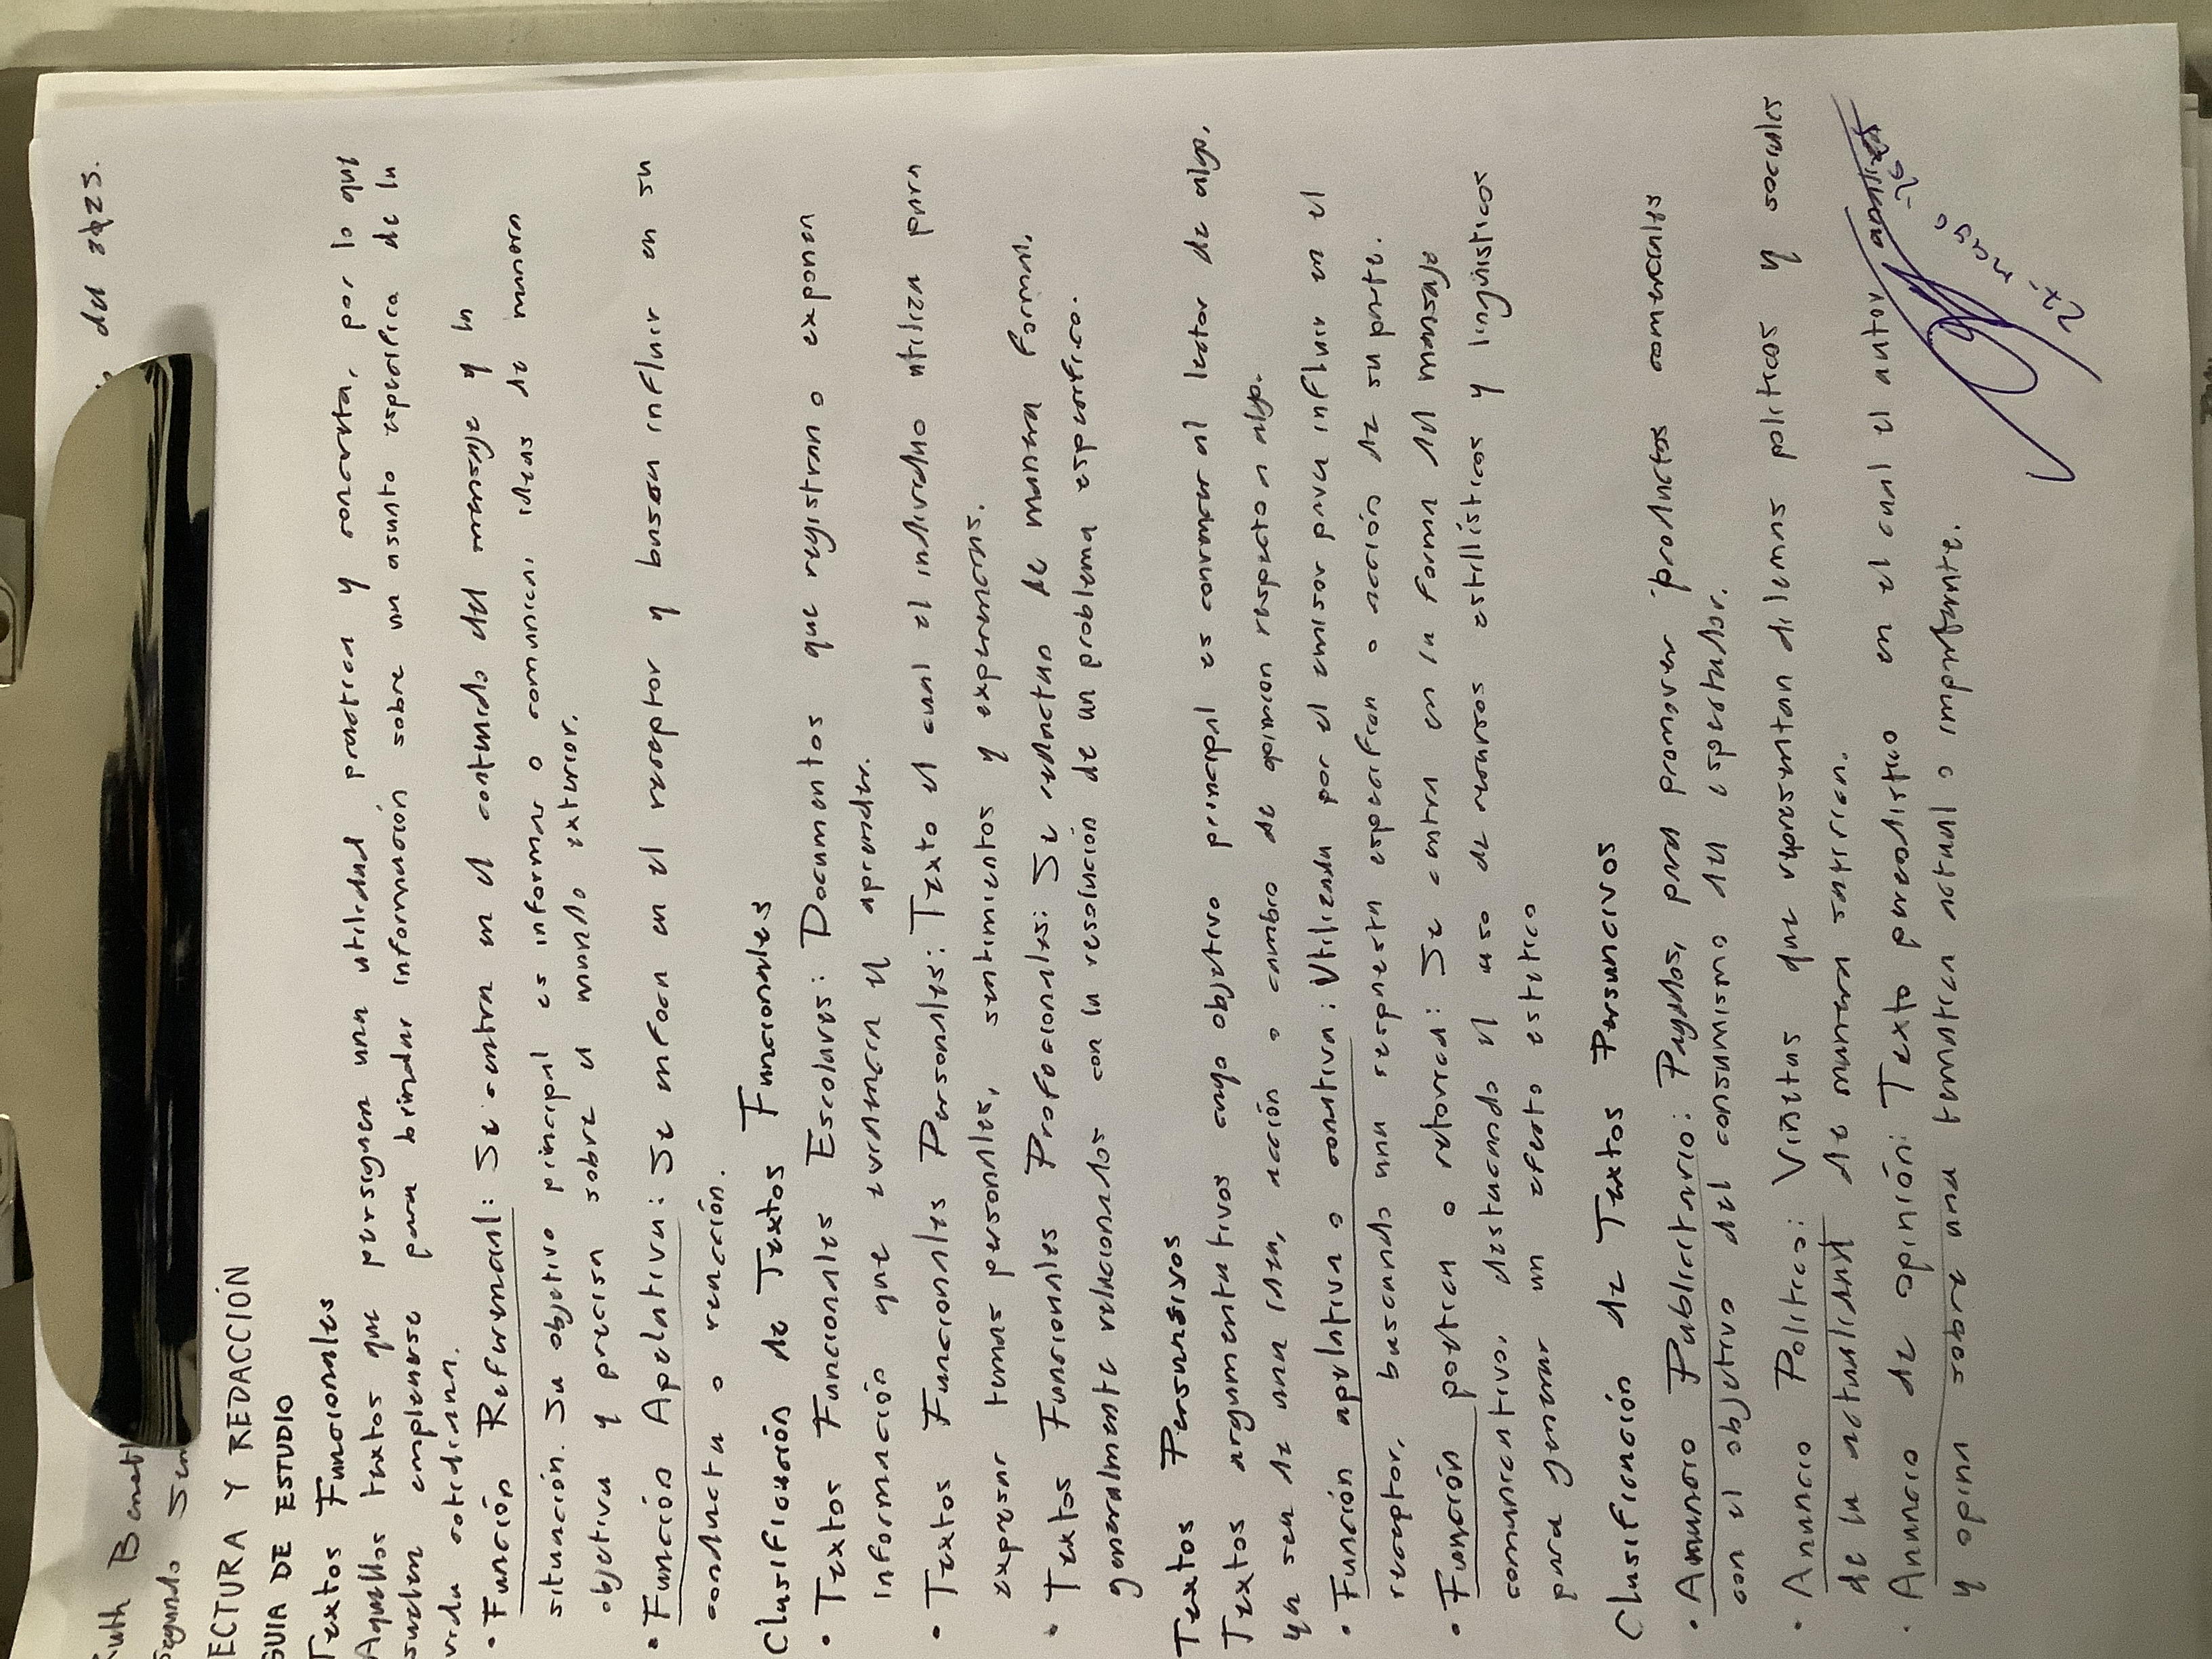 Ruth
Segundo
del 2023.
LECTURA Y REDACCIÓN
GUIA DE ESTUDIO
Textos Funcionales
Aquellos textos que persiguen una utilidad practica y concreta, por lo que
suelen emplearse para brindar información sobre un asunto especifica de la
vida cotidiana.
• Función Referencial: Se centra en el contenido del mensaje y la
situación. Su objetivo principal es informar o comunicar ideas de manera
objetiva y precisa sobre el mundo exterior.
• Función Apelativa: Se enfoca en el receptor y buscan influir en su
conducta o reacción.
Clasificación de Textos Funcionales
• Textos Funcionales Escolares: Documentos que registran o exponen
información que evidencia el aprender.
• Textos Funcionales Personales: Texto el cual el individuo utiliza para
expresar temas personales, sentimientos y experiencias.
• Textos Funcionales Profecionales: Se redactan de manera formal,
generalmente relacionados con la resolución de un problema especifico.
Textos Persuasivos
Textos argumentativos cuyo objetivo principal es convencer al lector de algo,
ya sea de una idea, acción o cambio de opinion respecto a algo.
• Función apelativa o conativa: Utilizada por el emisor para influir en el
receptor, buscando una respuesta especifica o acción de su parte.
• Función poetica o retorica: Se centra en la forma del mensaje
comunicativo, destacando el uso de recursos estillísticos y lingüisticos
para generar un efecto estetico
Clasificación de Textos Persuacivos
• Anuncio Publicitario: Pagados, para promover productos comerciales
con el objetivo del consumismo del espectador.
• Anuncio Politico: Viñetas que representan dilemas politicos y sociales
de la actualidad de manera satirica.
• Anuncio de opinión: Texto periodistico en el cual el autor
y opina sobre una tematica actual o importante.